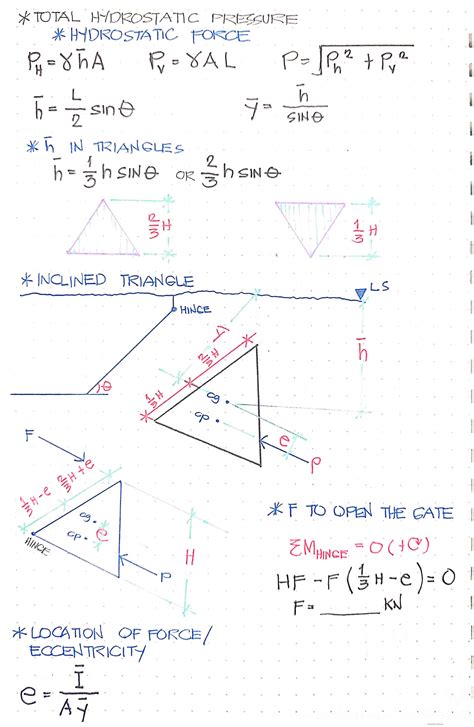 * TOTAL HYDROSTATIC PRESSURE
* HYDROSTATIC FORCE
P_H = γh̄A P_v = γAL P = √(P_h² + P_v²)
h̄ = L/2 sin θ ȳ = h̄/SIN θ
* h̄ IN TRIANGLES
h̄ = 1/3 h SIN θ OR 2/3 h SIN θ
2/3 H
1/3 H
* INCLINED TRIANGLE
LS
HINGE
ȳ
h̄
θ
1/3 H 2/3 H
cg
cp
e
P
F
1/3 H-e 2/3 H+e
cg
cp e
H
HINGE
P
* F TO OPEN THE GATE
ΣM_HINGE = 0 (+↻)
HF - F (1/3 H - e) = 0
F = ______ KN
* LOCATION OF FORCE/
ECCENTRICITY
e = Ī/Aȳ